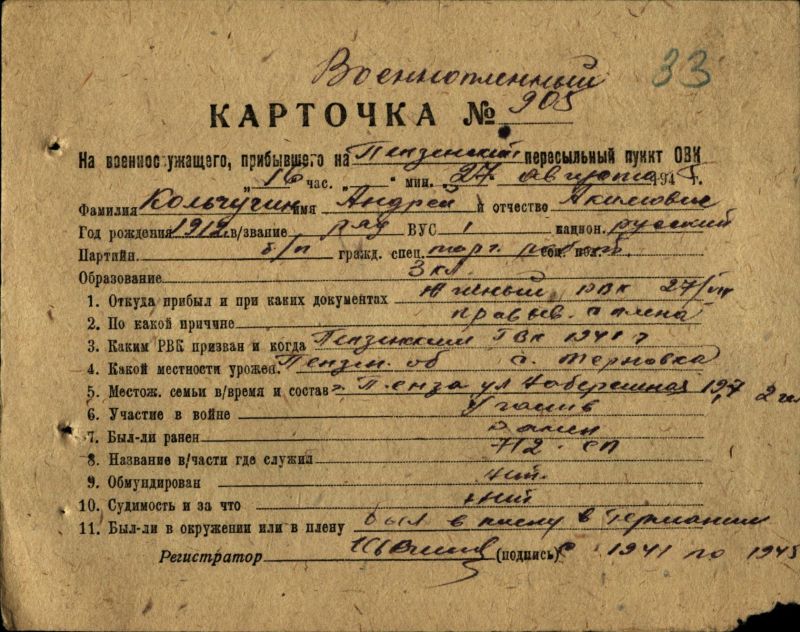 Военнопленный 33
КАРТОЧКА № 905
На военнослужащего, прибывшего на Пензенский пересыльный пункт ОВК
„ 16 час. „ " мин. 27 августа 1945 г.
Фамилия Кольчугин имя Андрей и отчество Акимович
Год рождения 1912 в/звание ряд ВУС национ. русский
Партийн б/п гражд. спец.
Образование 3 кл.
1. Откуда прибыл и при каких документах Южный РВК 27/VIII
2. По какой причине плена
3. Каким РВК призван и когда Пензенским ГВК 1941 г
4. Какой местности урожен. Пензен. об с. Терновка
5. Местож. семьи в/время и состав г. Пенза ул Набережная
6. Участие в войне Участв
7. Был-ли ранен Ранен
8. Название в/части где служил 712 СП
9. Обмундирован нет.
10. Судимость и за что нет
11. Был-ли в окружении или в плену был в плену в Германии
Регистратор (подпись) с 1941 по 1945